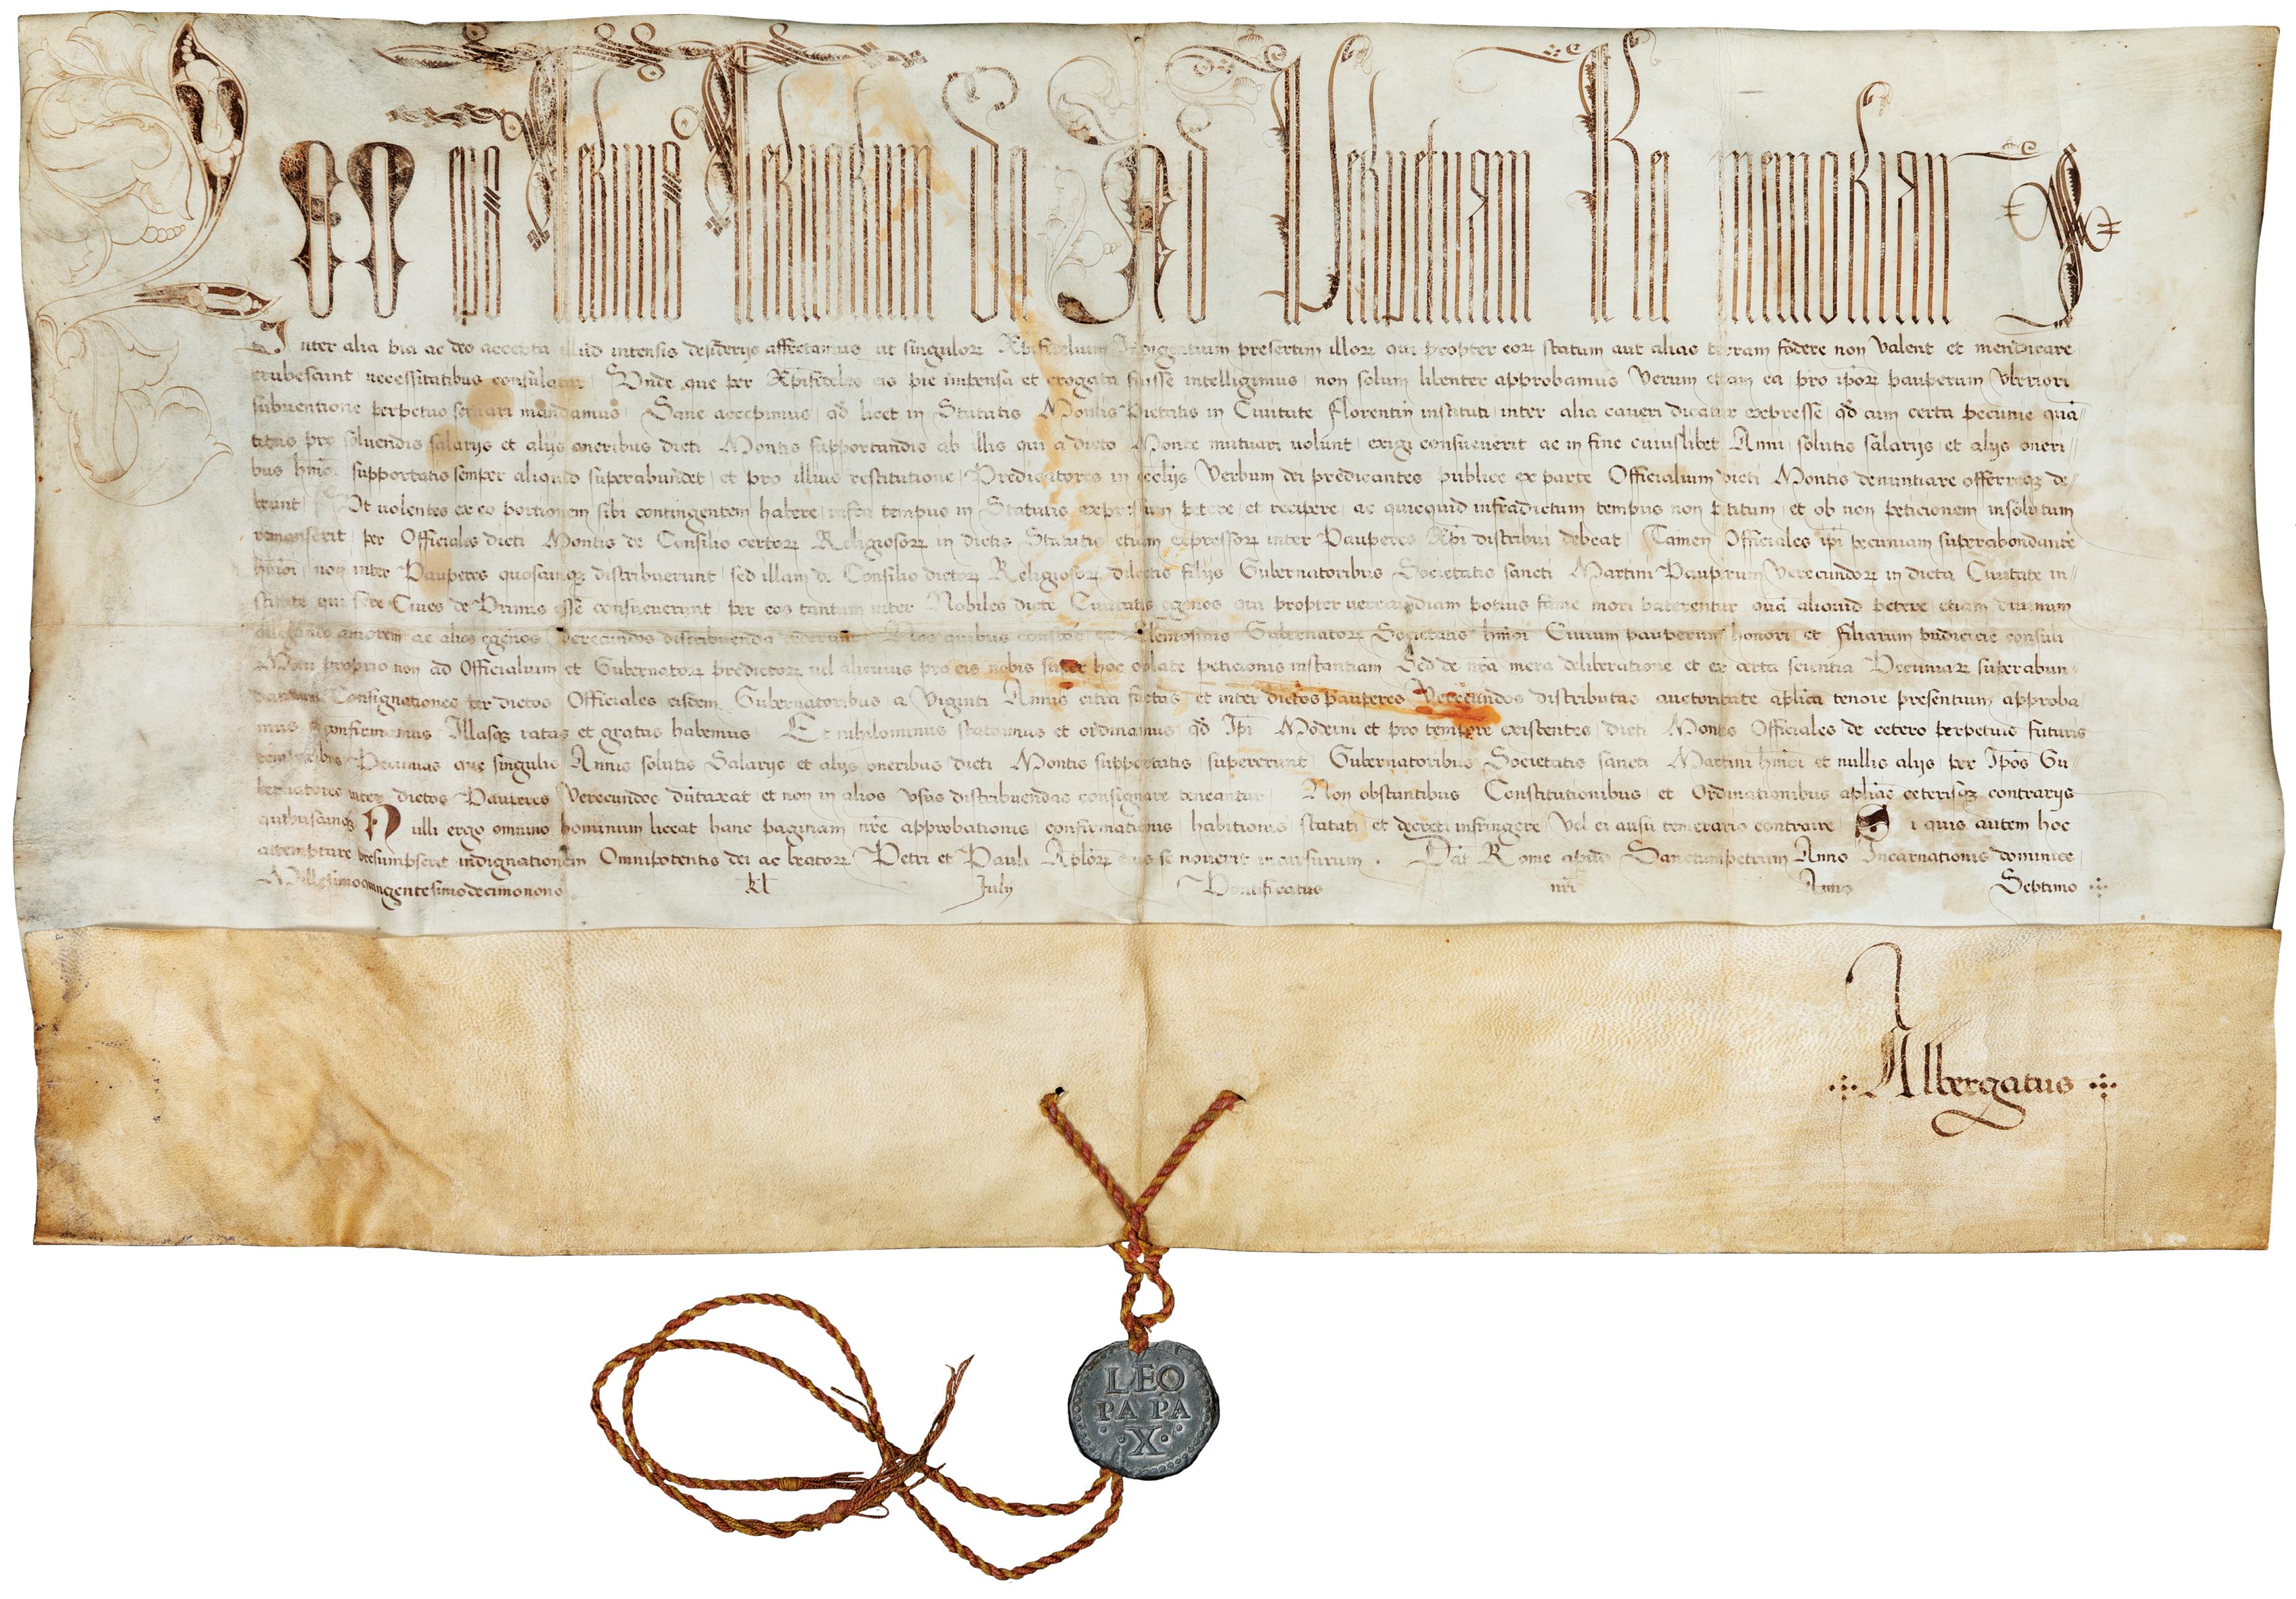 Leo eps Seruus Seruorum dei Ad Perpetuam Rei memoriam
Inter alia pia ac deo accepta illud intensis desiderijs affectamus ut singulorꝝ Xpifidelium Indigentium presertim illorꝝ qui propter eorꝝ statum aut alias terram fodere non valent et mendicare
erubescunt necessitatibus consulatur Unde que per Xpifideles eis pie impensa et erogata fuisse intelligimus non solum libenter approbamus Verum etiam ea pro ipsorꝝ pauperum Vberiori
subuentione perpetuo seruari mandamus Sane accepimus qd licet in Statutis Montis Pietatis in Ciuitate Florentin instituti inter alia caueri dicatur expresse qd cum certa pecunie quā-
titas pro soluendis salarijs et alijs oneribus dicti Montis supportandis ab illis qui a dicto Monte mutuari uolunt exigi consueuerit ac in fine cuiuslibet Anni solutis salarijs et alijs oneri-
bus hmōi supportatis semper aliquid superabundet et pro illius restitutione Predicatores in ecclijs Verbum dei predicantes publice ex parte Officialium dicti Montis denuntiare offerreqꝫ de-
beant Ut uolentes ex eo portionem sibi contingentem habere infra tempus in Statutis expressum petere et recipere ac quicquid infradictum tempus non petitum et ob non peticionem insolutum
remanserit per Officiales dicti Montis de Consilio certorꝝ Religiosorꝝ in dictis Statutis etiam expressorꝝ inter Pauperes Xpi distribui debeat Tamen Officiales ipi pecuniam superabondantē
hmōi non inter Pauperes quoscunqꝫ distribuerunt sed illam de Consilio dictorꝝ Religiosorꝝ dilectis filijs Gubernatoribus Societatis sancti Martini Pauperum Verecundorꝝ in dicta Ciuitate in-
stitute qui fere Ciues de Primis esse consueuerunt per eos tantum inter Nobiles dicte Ciuitatis egenos qui propter verecundiam potius fame mori paterentur quā aliquid petere etiam diuinum
amorem ac alios egenos Verecundos distribuenda Nos quibus constat ex Elemosinis Gubernatorꝝ Societatis hmōi Ciuium pauperum honori et filiarum pudicicie consuli
Motu proprio non ad Officialium et Gubernatorꝝ predictorꝝ uel alicuius pro eis nobis super hoc oblate peticionis instantiam Sed de nrā mera deliberatione et ex certa scientia Pecuniarꝝ superabun-
dantium Consignationes per dictos Officiales eisdem Gubernatoribus a Viginti Annis citra factas et inter dictos pauperes Verecundos distributas auctoritate aplica tenore presentium approba
mus et confirmamus Illasqꝫ ratas et gratas habemus Et nihilominus statuimus et ordinamus qd Ipi Moderni et pro tempore existentes dicti Montis Officiales de cetero perpetuis futuris
temporibus Pecunias que singulis Annis solutis Salarijs et alijs oneribus dicti Montis supportatis supererunt Gubernatoribus Societatis sancti Martini hmōi et nullis alijs per Ipos Gu-
bernatores inter dictos Pauperes Verecundos dūtaxat et non in alios Vsus distribuendas consignare teneantur Non obstantibus Constitutionibus et Ordinationibus aplicis ceterisqꝫ contrarijs
quibuscunqꝫ Nulli ergo omnino hominum liceat hanc paginam nrē approbationis confirmationis habitionis statuti et decreti infringere Vel ei ausu temerario contraire Si quis autem hoc
attemptare presumpserit indignationem Omnipotentis dei ac beatorꝝ Petri et Pauli Aplorꝝ eius se nouerit incursurum . Dat Rome apud Sanctumpetrum Anno Incarnationis dominice
Millesimoquingentesimodecimonono kl July Pontificatus nri Anno Septimo
Albergatus
LEO
PA PA
·X·